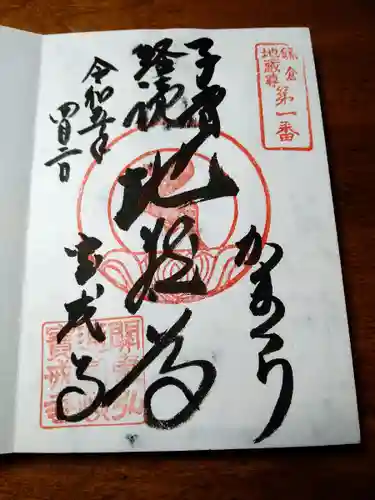 鎌倉
地蔵尊
第一番
子育
経読
地蔵尊
かまくら
令和五年
四月二日
宝戒寺
寶戒寺